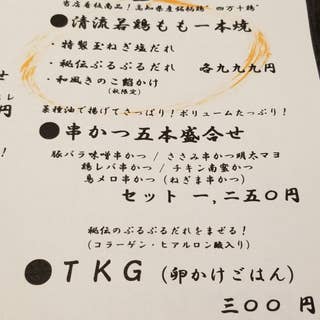 当店看板商品！高知県産銘柄鶏"四万十鶏"
●清流若鶏もも一本焼
・特製玉ねぎ塩だれ
・秘伝ぷるぷるだれ 各九九九円
・和風きのこ餡かけ
(秋限定)
菜種油で揚げてさっぱり！ボリュームたっぷり！
●串かつ五本盛合せ
豚バラ味噌串かつ / ささみ串かつ明太マヨ
鶏レバ串かつ / チキン南蛮かつ
鳥メロ串かつ (ねぎま串かつ)
セット 一,二五〇円
秘伝のぷるぷるだれをまぜる！
(コラーゲン・ヒアルロン酸入り)
●TKG (卵かけごはん)
三〇〇 円